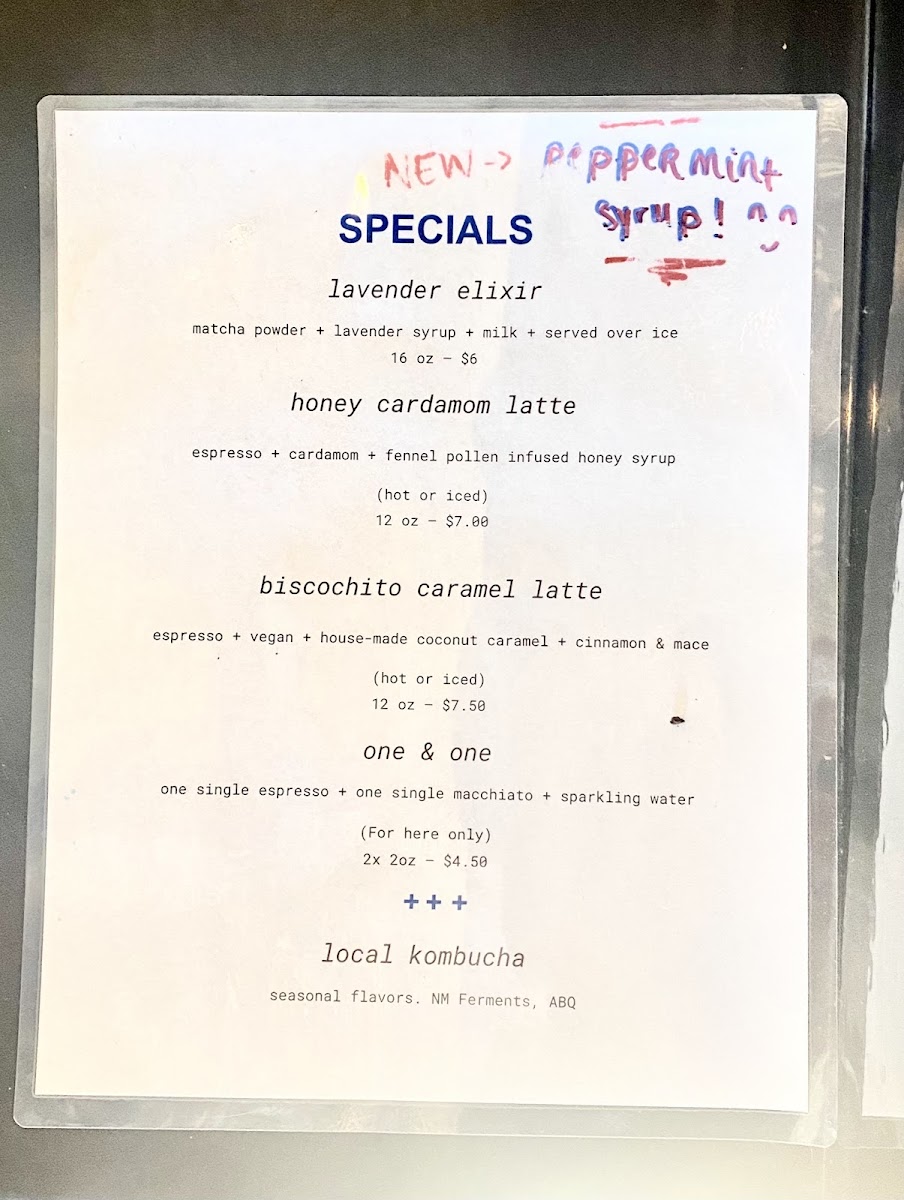 NEW -> peppermint
syrup!
SPECIALS
lavender elixir
matcha powder + lavender syrup + milk + served over ice
16 oz – $6
honey cardamom latte
espresso + cardamom + fennel pollen infused honey syrup
(hot or iced)
12 oz – $7.00
biscochito caramel latte
espresso + vegan + house-made coconut caramel + cinnamon & mace
(hot or iced)
12 oz – $7.50
one & one
one single espresso + one single macchiato + sparkling water
(For here only)
2x 2oz – $4.50
+++
local kombucha
seasonal flavors. NM Ferments, ABQ